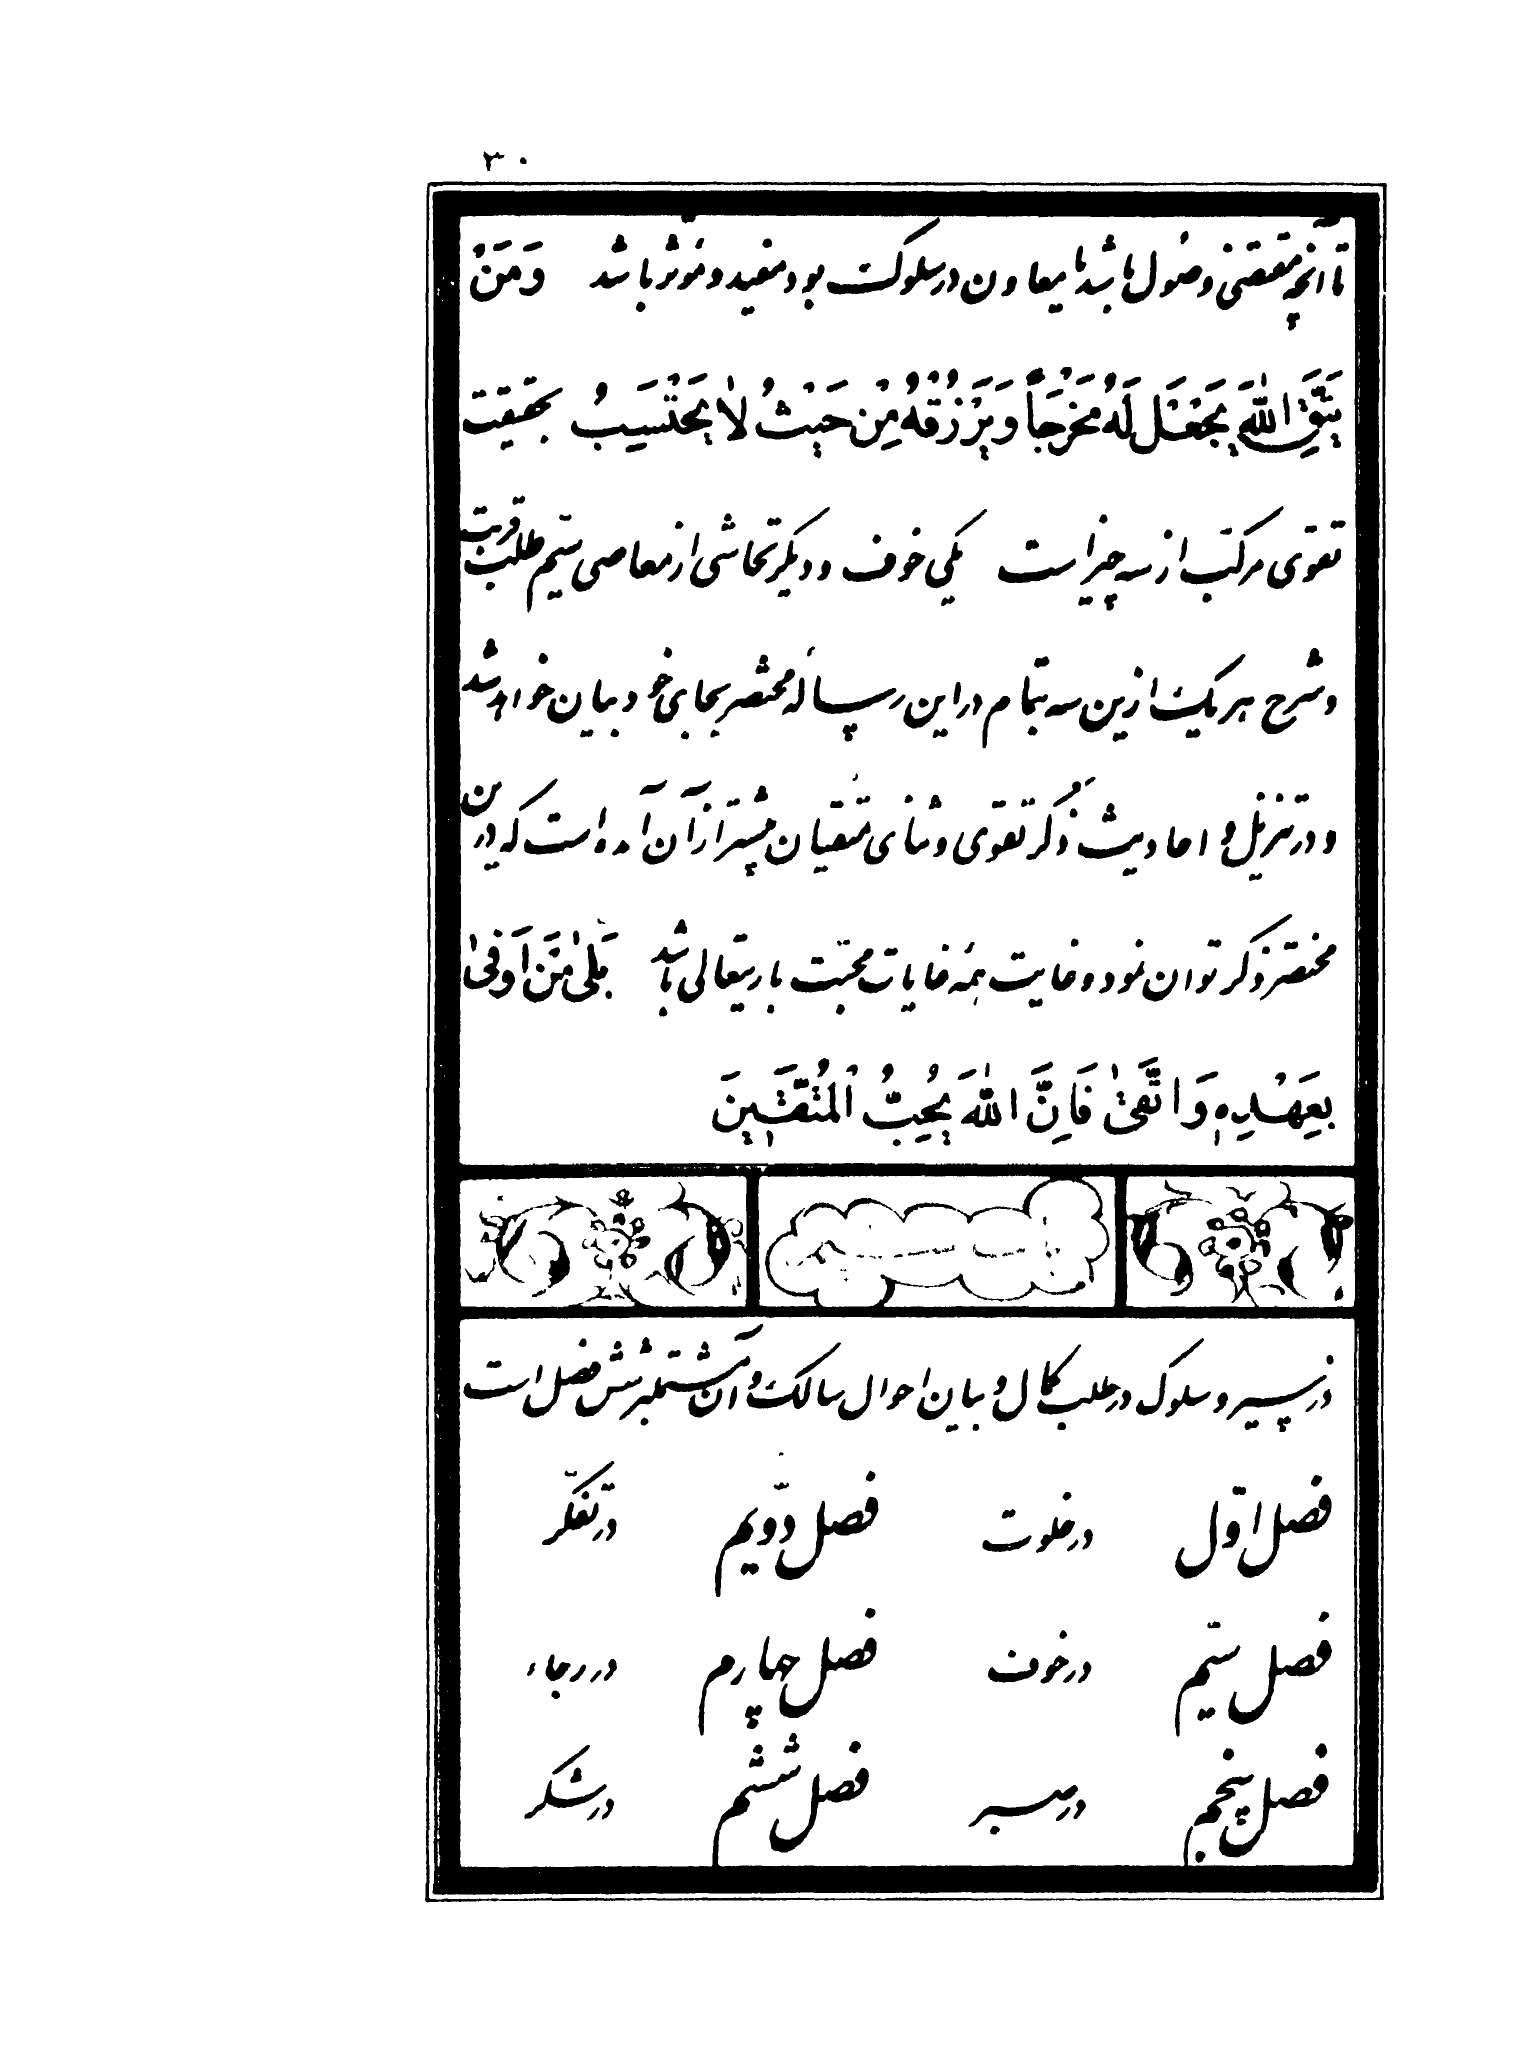 ۳۰
تا آنچه مقتضی وصول باشد یا معاون در سلوک بود مفید و مؤثر باشد وَمَنْ
یَتَّقِ اللّٰهَ یَجْعَلْ لَهُ مَخْرَجاً وَیَرْزُقْهُ مِنْ حَیْثُ لاٰ یَحْتَسِبُ بحقیقت
تقوی مرکب از سه چیز است یکی خوف و دیگر تحاشی از معاصی سیّم طلب قربت
و شرح هر یک ازین سه بتمام در این رساله مختصر بجای خود بیان خواهد شد
و در تنزیل و احادیث ذکر تقوی و ثنای متقیان بیشتر از آن آمده است که درین
مختصر ذکر توان نمود و غایت همه غایات محبّت باریتعالی باشد بَلیٰ مَنْ اَوْفیٰ
بِعَهْدِهِ وَاتَّقیٰ فَاِنَّ اللّٰهَ یُحِبُّ الْمُتَّقینَ
در سیر و سلوک در طلب کمال و بیان احوال سالک و آن مشتمل بر شش فصل است
فصل اوّل در خلوت فصل دوّیم در تفکّر
فصل سیّم در خوف فصل چهارم در رجاء
فصل پنجم در صبر فصل ششم در شکر